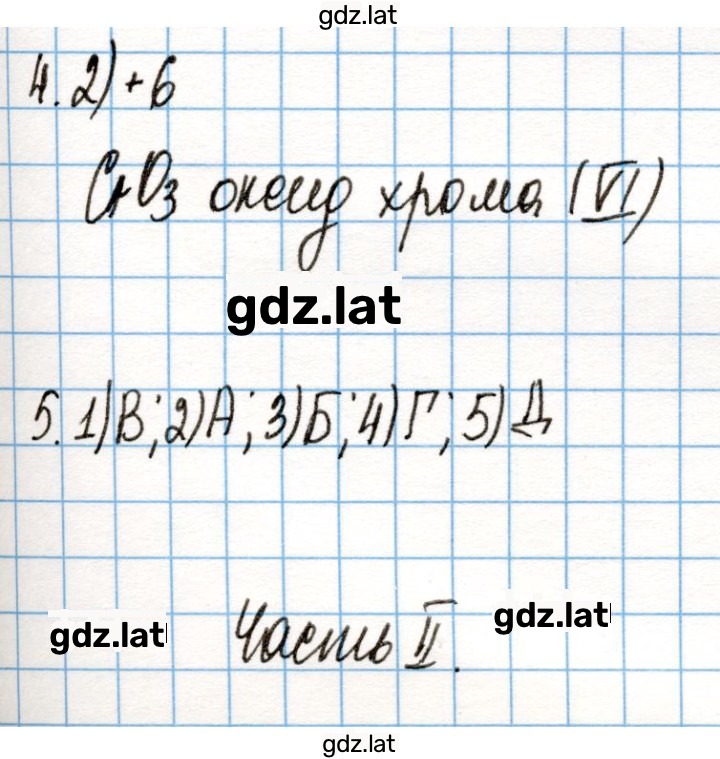 gdz.lat
4. 2) +6
CrO3 оксид хрома (VI)
gdz.lat
5. 1) В; 2) А; 3) Б; 4) Г; 5) Д
gdz.lat
gdz.lat
Часть II.
gdz.lat